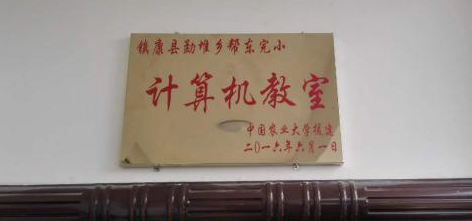 镇康县勐堆乡帮东完小
计算机教室
中国农业大学援建
二〇一六年六月一日